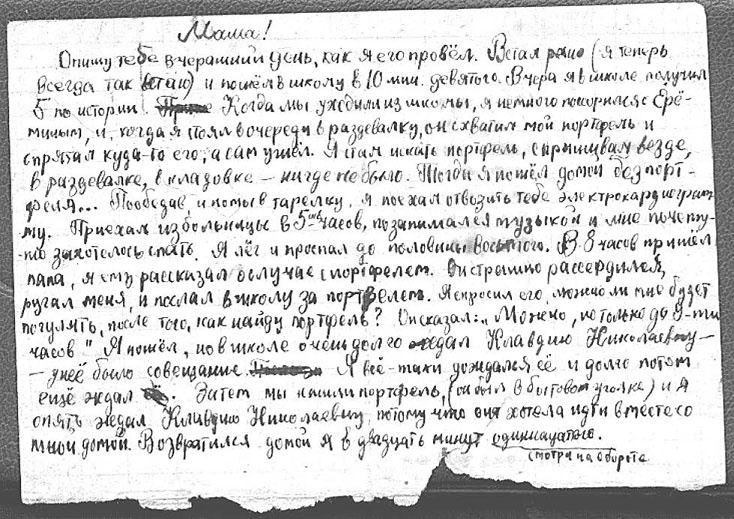 Мама!
Опишу тебе вчерашний день, как я его провёл. Встал рано (я теперь
всегда так встаю) и пошёл в школу в 10 мин. девятого. Вчера я в школе получил
5 по истории. Когда мы уходили из школы, я немного повозился с Ерё-
миным, и, когда я стоял в очереди в раздевалку, он схватил мой портфель и
спрятал куда-то его, а сам ушёл. Я стал искать портфель, спрашивал везде,
в раздевалке, в кладовке – нигде не было. Тогда я пошёл домой без порт-
феля... Пообедав и помыв тарелку, я поехал отвозить тебе электрокардиограм-
му. Приехал из больницы в 5 часов, позанимался музыкой и мне почему-
то захотелось спать. Я лёг и проспал до половины восьмого. В 8 часов пришёл
папа, я ему рассказал о случае с портфелем. Он страшно рассердился,
ругал меня, и послал в школу за портфелем. Я спросил его, можно ли мне будет
погулять, после того, как найду портфель? Он сказал: „Можно, но только до 9-ти
часов" Я пошёл, но в школе очень долго ждал Клавдию Николаевну –
– у неё было совещание. Я всё-таки дождался её и долго потом
ещё ждал. Затем мы нашли портфель, (он был в бытовом уголке) и я
опять ждал Клавдию Николаевну, потому что она хотела идти вместе со
мной домой. Возвратился домой я в двадцать минут одиннадцатого.
смотри на обороте